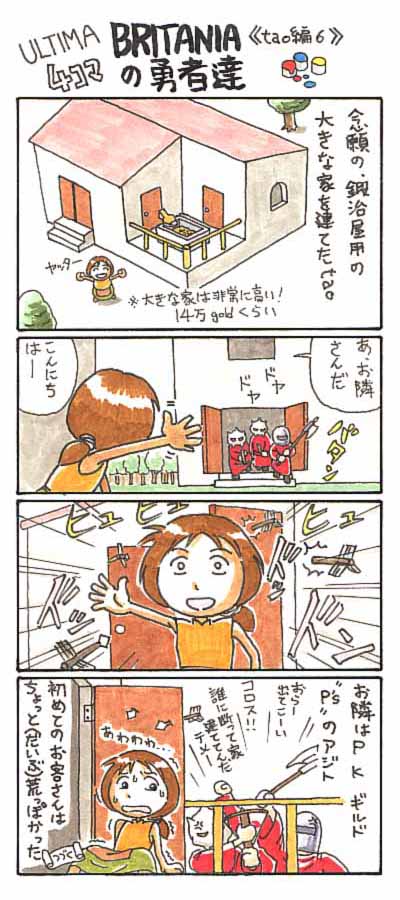 ULTIMA
4コマ
BRITANIA
の勇者達
《tao編6》
念願の、鍛冶屋用の
大きな家を建てたtao
ヤッター
※大きな家は非常に高い!
14万goldくらい
あ、お隣
さんだ
こんにち
はー
ドヤ
ドヤ
バタン
ヒュ
ヒュ
ヒュ
ズドッ
ズドン
お隣はPKギルド
"P's"のアジト
おらー
出てこーい
コロス!!
誰に断って家
建ててんだ
テメー
あわわわ…
初めてのお客さんは
ちょっと(だいぶ)荒っぽかった
つづく